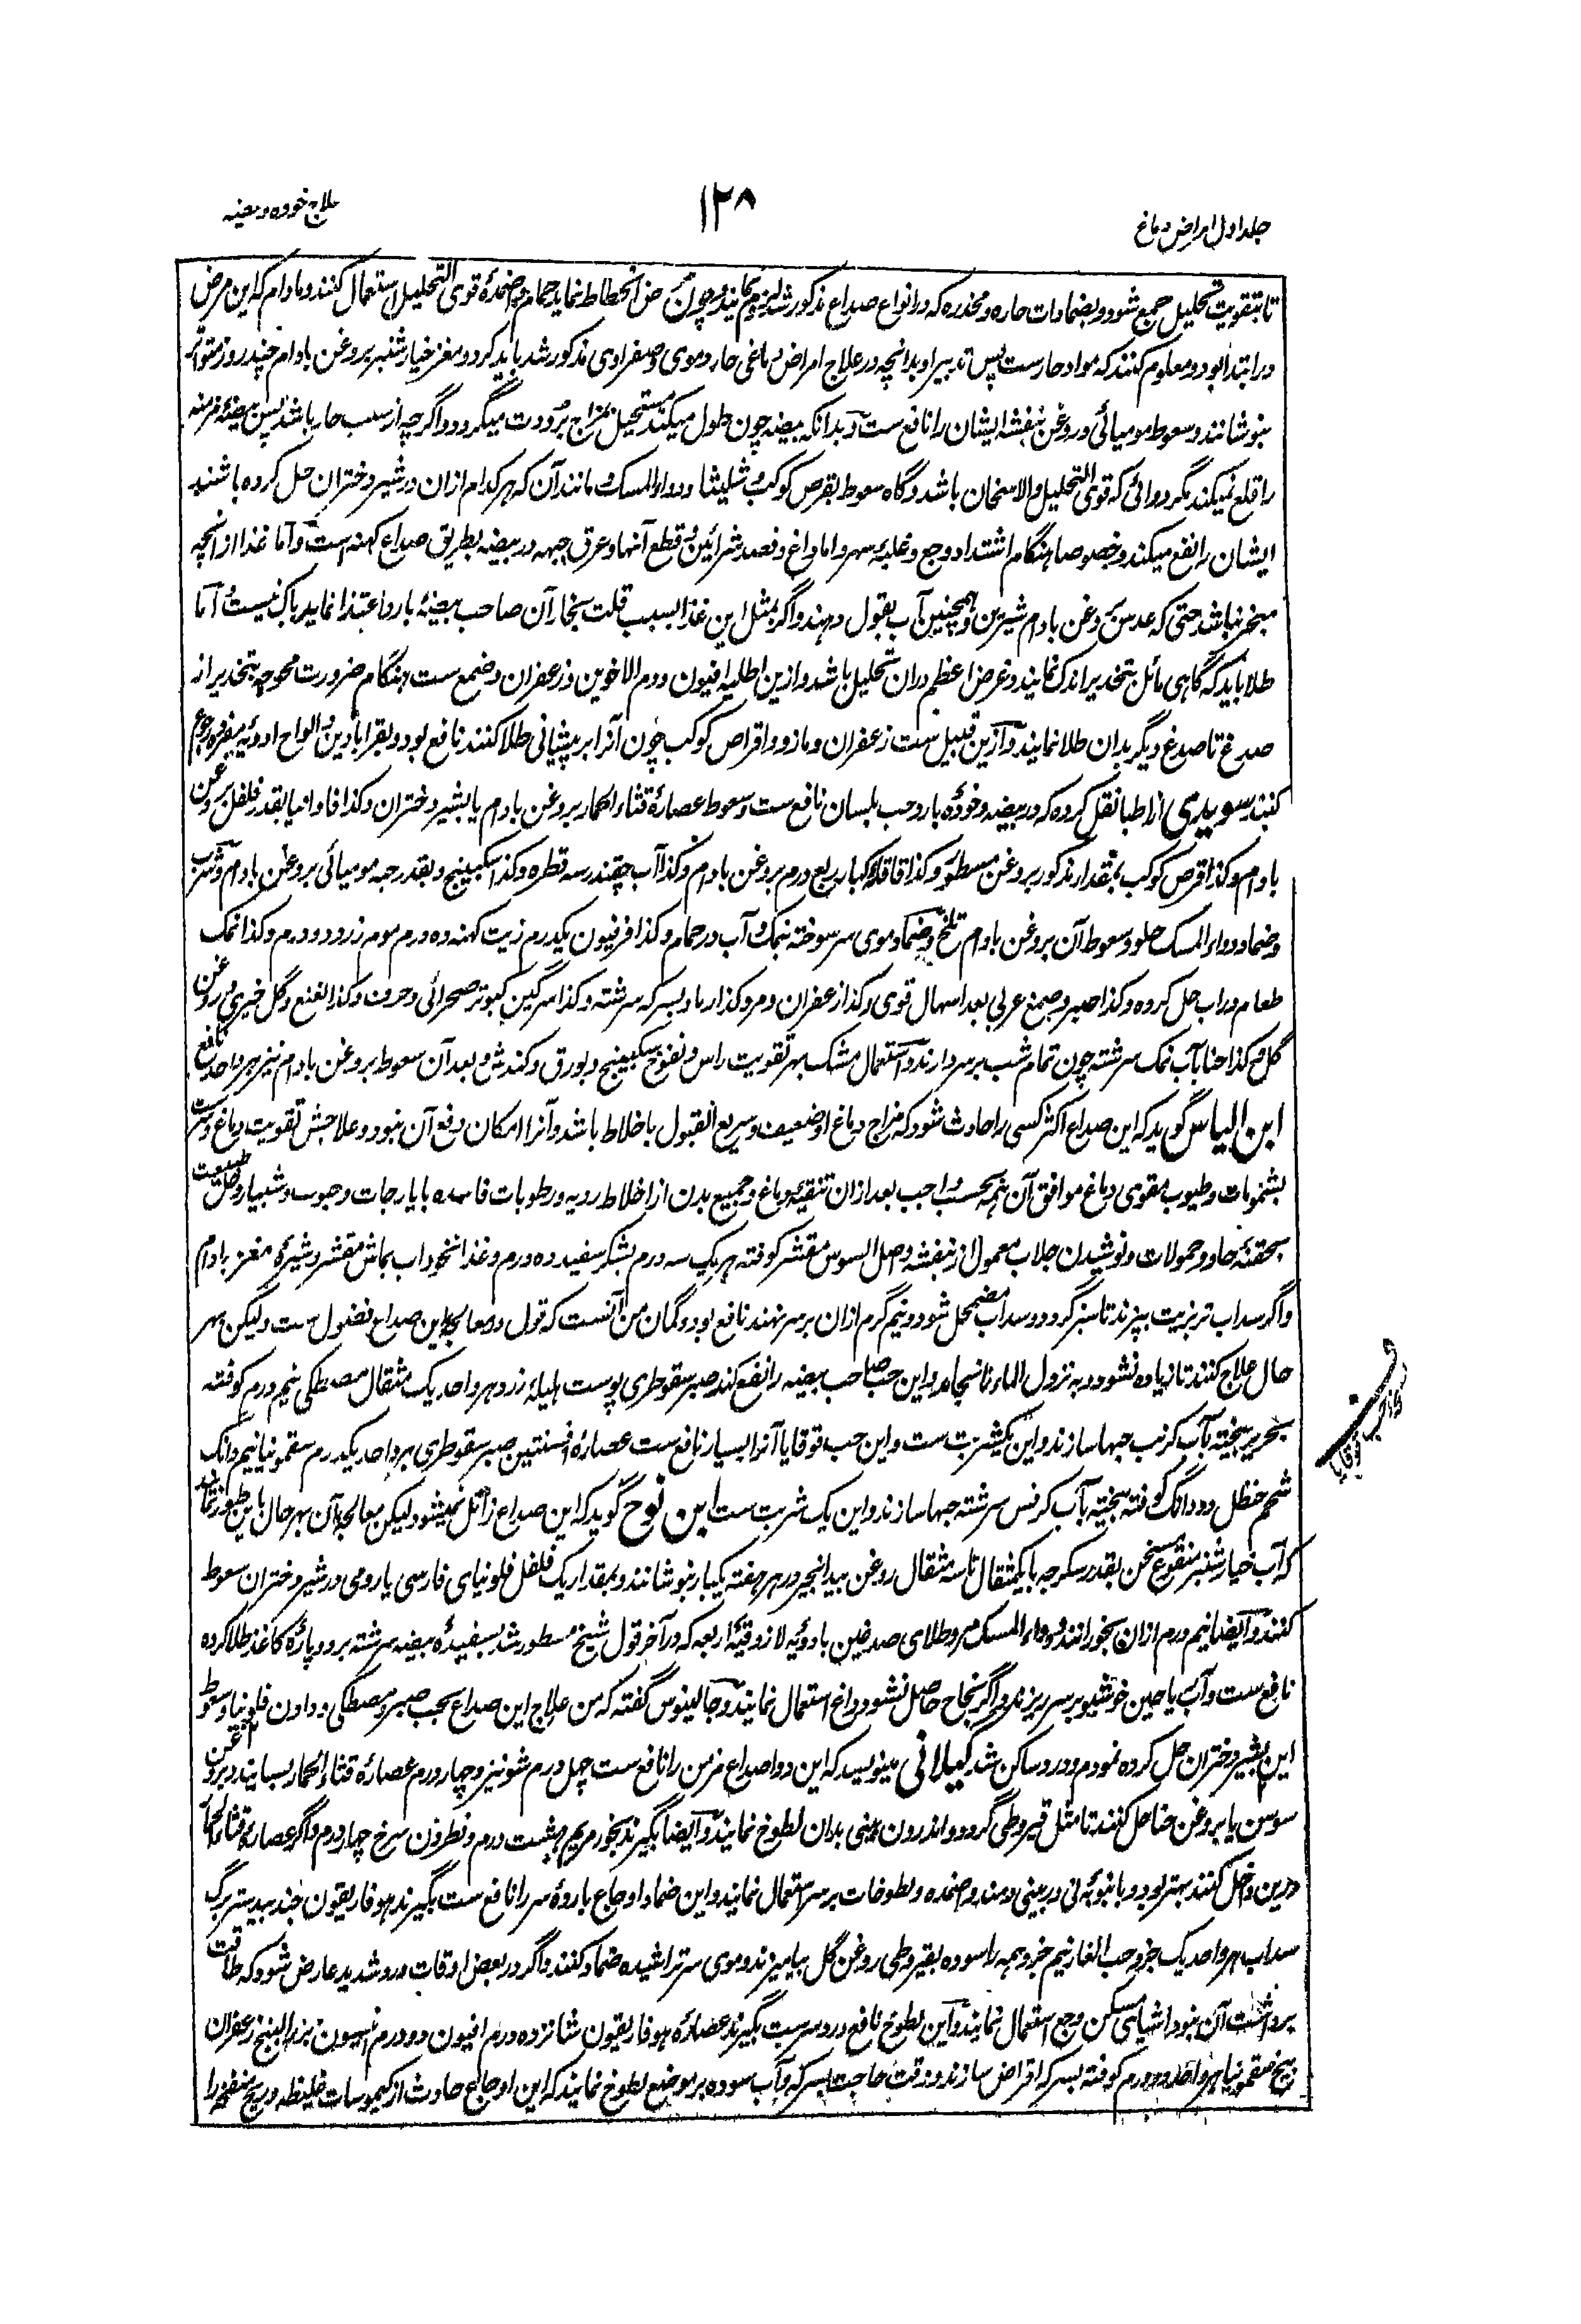 جلد اول امراض دماغ
۱۲۸
علاج خوده و بیضه
تا بتقویت تحلیل جمیع شود و بضمادات حاره و مخدره که در انواع صداع مذکور شد نمایند و چون مرض انحطاط نماید حمام و اضمدهٔ قوی التحلیل استعمال کنند و مادام که این مرض
در ابتدا بود و معلوم کنند که مواد حارست پس تدبیر او بدانچه در علاج امراض دماغی حار دموی و صفراوی مذکور شد باید کرد و مغز خیارشنبر بروغن بادام چند روز متواتر
بنوشانند و سعوط مومیائی و روغن بنفشه ایشان را نافع ست و بدانکه بیضه چون طول میکند مستحیل بمزاج برودت میگردد و اگرچه از سبب حار باشد پس بیضهٔ مزمنه
را قلع نمیکند مگر دوائی که قوی التحلیل والاسخان باشد و گاه سعوط بقرص کوکب و شلیثا و دواءالمسک و مانند آن که هر کدام ازان در شیر دختران حل کرده باشند
ایشان را نفع میکند و خصوصا هنگام اشتداد وجع و غلبهٔ سهر و اما داغ و فصد شرائین و قطع آنها و عرق جبهه در بیضه بطریق صداع کهنه است و اما غذا از آنچه
مبخر نباشد حتی که عدس بروغن بادام شیرین و همچنین آب بقول دهند و اگر بمثل این غذا بسبب قلت بخار آن صاحب بیضهٔ بارد اغتذا نماید باک نیست و اما
طلا باید که گاهی مائل بتخدیر اندک نمایند و غرض اعظم دران تحلیل باشد و ازین اطلیه افیون و دم الاخوین و زعفران و صمغ ست هنگام ضرورت محوجه بتخدیر از
صدغ تا صدغ دیگر بدان طلا نمایند و ازین قبیل ست زعفران و مازو و اقراص کوکب چون آنرا بر پیشانی طلا کنند نافع بود و بقرابادین و الواح ادویهٔ مفرده رجوع
کنند سویدی از اطبا نقل کرده که در بیضه و خودهٔ بارد حب بلسان نافع ست و سعوط عصارهٔ قثاء الحمار بروغن بادام یا بشیر دختران و کذا فاوانیا بقدر فلفل بروغن
بادام و کذا قرص کوکب بمقدار مذکور بروغن مسطور و کذا قاقلهٔ کبار ربع درم بروغن بادام و کذا آب چقندر سه قطره و کذا سکبینج و بقدر حبه مومیائی بروغن بادام و شرب
و ضماد دواءالمسک حلو و سعوط آن بروغن بادام تلخ و ضماد موی سر سوخته بنمک و آب در حمام و کذا فرفیون یکدرم زیت کهنه ده درم موم زرد دو درم و کذا نمک
طعام در آب حل کرده و کذا صبر و صمغ عربی بعد اسهال قوی و کذا زعفران و مر و کذا رماد بسرکه سرشته و کذا سرگین کبوتر صحرائی و حرف و کذا نعنع و گل خیری و روغن
گل و کذا حنا بآب نمک سرشته چون تمام شب بر سر دارند و استعمال مشک بهر تقویت راس و نفوخ سکبینج و بورق و کندش و بعد آن سعوط بروغن بادام نیز هر واحد نافع
ابن الیاس گوید که این صداع اکثر کسی را حادث شود که مزاج دماغ او ضعیف و سریع القبول باخلاط باشد و آنرا امکان دفع آن نبود و علاجش تقویت دماغ و سر ست
بشمومات و طیوب مقوی دماغ موافق آن همه بحسب واجب بعد ازان تنقیهٔ دماغ و جمیع بدن از اخلاط ردیه و رطوبات فاسده بایارجات و حبوب و شبیار و حل طبیعت
بحقنهٔ حاد و حمولات و نوشیدن جلاب معمول از بنفشه و اصل السوس مقشر کوفته هر یک سه درم بشکر سفید ده درم و غذا نخودآب بماش مقشر و شیرهٔ مغز بادام
و اگر سداب تر بزیت بپزند تا سبز گردد و سداب مضمحل شود و نیم گرم ازان بر سر نهند نافع بود و گمان من آنست که قول در معالجهٔ این صداع فضول ست ولیکن بهر
حال علاج کنند تا زیاده نشود و به نزول الماء نا انجامد و این حب صاحب بیضه را نفع کند صبر سقوطری پوست هلیلهٔ زرد هر واحد یک مثقال مصطکی نیم درم کوفته
بحریر بیخته بآب کرنب حبها سازند و این یکشربت ست و این حب قوقایا آنرا بسیار نافع ست عصارهٔ افسنتین صبر سقوطری هر واحد یکدرم سقمونیا نیم دانگ
شحم حنظل دو دانگ کوفته بیخته بآب کرفس سرشته حبها سازند و این یک شربت ست ابن نوح گوید که این صداع زائل نمیشود لیکن معالجهٔ آن بهر حال باین طور نمایند
که آب خیارشنبر منقوع سخن بقدر سکرجه با یکمثقال تا سه مثقال روغن بیدانجیر در هر هفته یکبار بنوشانند و بمقدار یک فلفل فلونیای فارسی یا رومی در شیر دختران سعوط
کنند و ایضا نیم درم ازان بخورانند و دواءالمسک مر و طلای صدغین بادویهٔ لازوقیهٔ اربعه که در آخر قول شیخ مسطور شد بسفیدهٔ بیضه سرشته بر دو پارهٔ کاغذ طلا کرده
نافع ست و آب ریاحین خوشبو بر سر ریزند و اگر نجاح حاصل نشود داغ استعمال نمایند و جالینوس گفته که من علاج این صداع بحب صبر و مصطکی و دادن فلونیا و سعوط
این بشیر دختران حل کرده نمودم و درد ساکن شد گیلانی مینویسد که این دوا صداع مزمن را نافع ست چهل درم شونیز و چهار درم عصارهٔ قثاء الحمار بسایند و بروغن
سوسن یا بروغن حنا حل کنند تا مثل قیروطی گردد و اندرون بینی بدان لطوخ نمایند و ایضا بگیرند بخور مریم هشت درم و نطرون سرخ چهار درم و اگر عصارهٔ قثاء الحمار
درین داخل کنند بهتر بود و بانبوبهٔ نی در بینی دمند و اضمده و لطوخات بر سر استعمال نمایند و این ضماد اوجاع باردهٔ سر را نافع ست بگیرند هوفاریقون جندبیدستر برگ
سداب هر واحد یک جزو حب الغار نیم جزو همه را سوده بقیروطی روغن گل بیامیزند و موی سر تراشیده ضماد کنند و اگر در بعض اوقات درد شدید عارض شود که طاقت
برداشت آن نبود اشیای مسکن وجع استعمال نمایند و این لطوخ نافع درد سرست بگیرند عصارهٔ هوفاریقون شانزده درم افیون دو درم انیسون بزرالبنج زعفران
بیخ سقمونیا هر واحد دو درم کوفته بسرکه اقراص سازند و وقت حاجت بسرکه و آب سوده بر موضع لطوخ نمایند که این اوجاع حادث از کیموسات غلیظه و ریح را